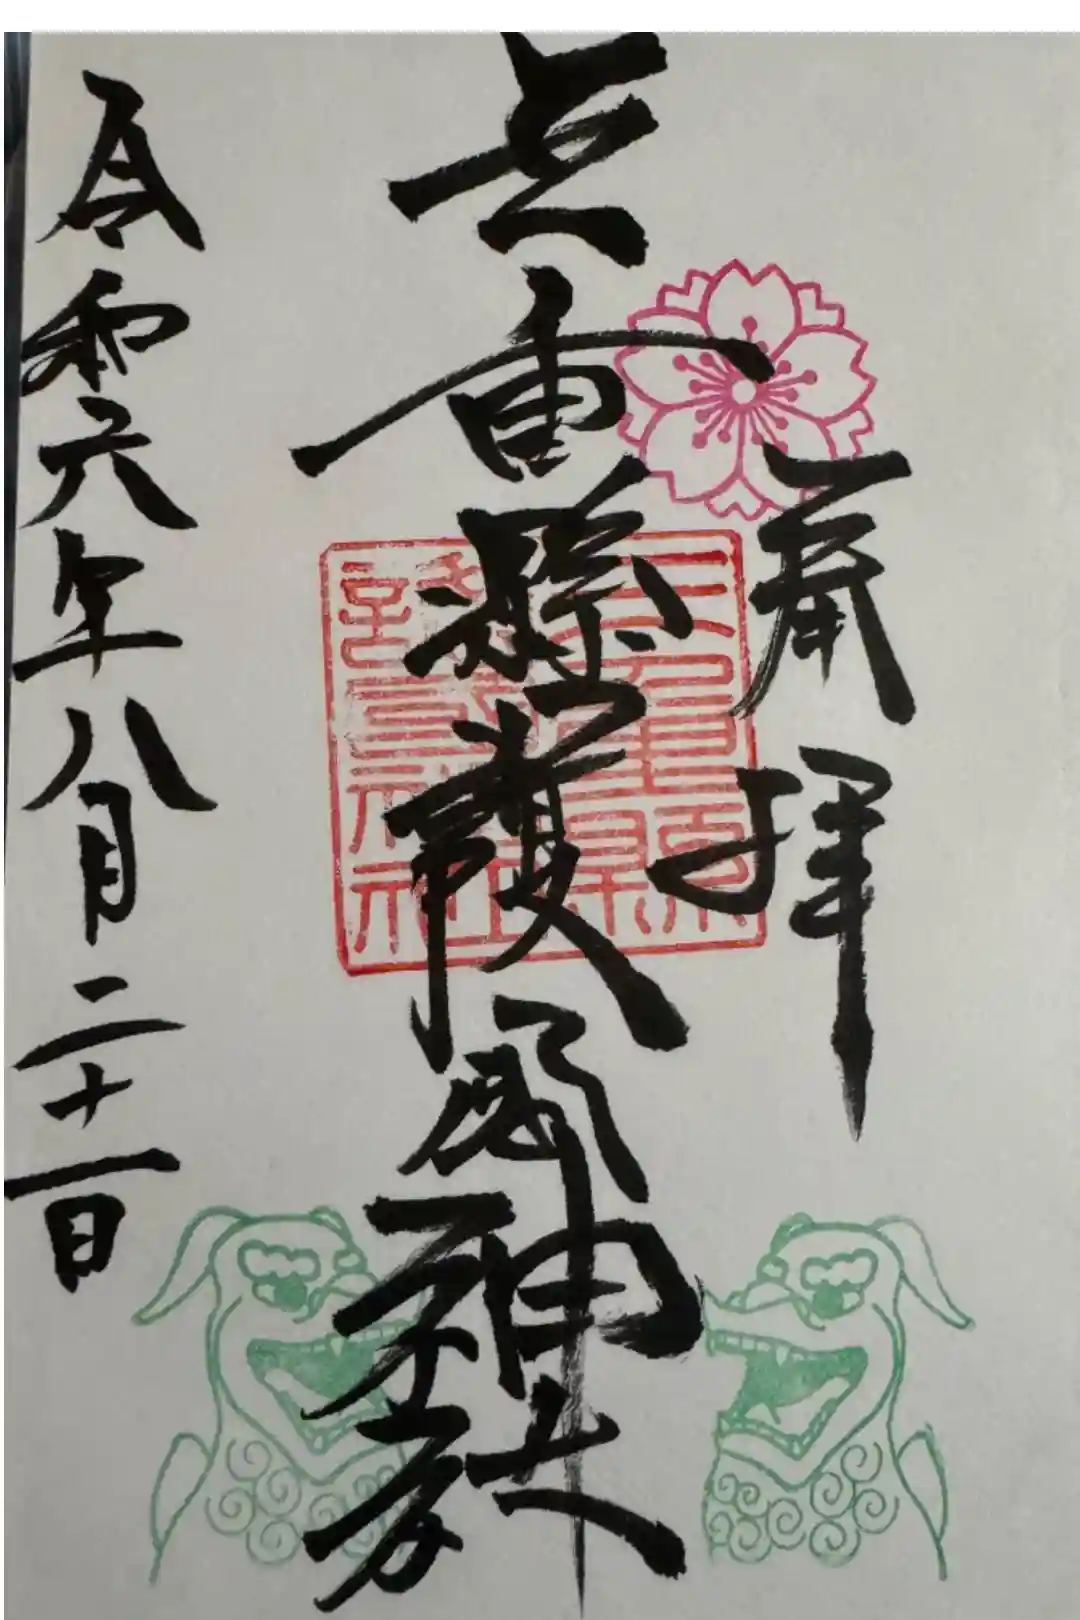 奉拝
三重縣護國神社
三重縣
護國神社
令和六年八月二十一日